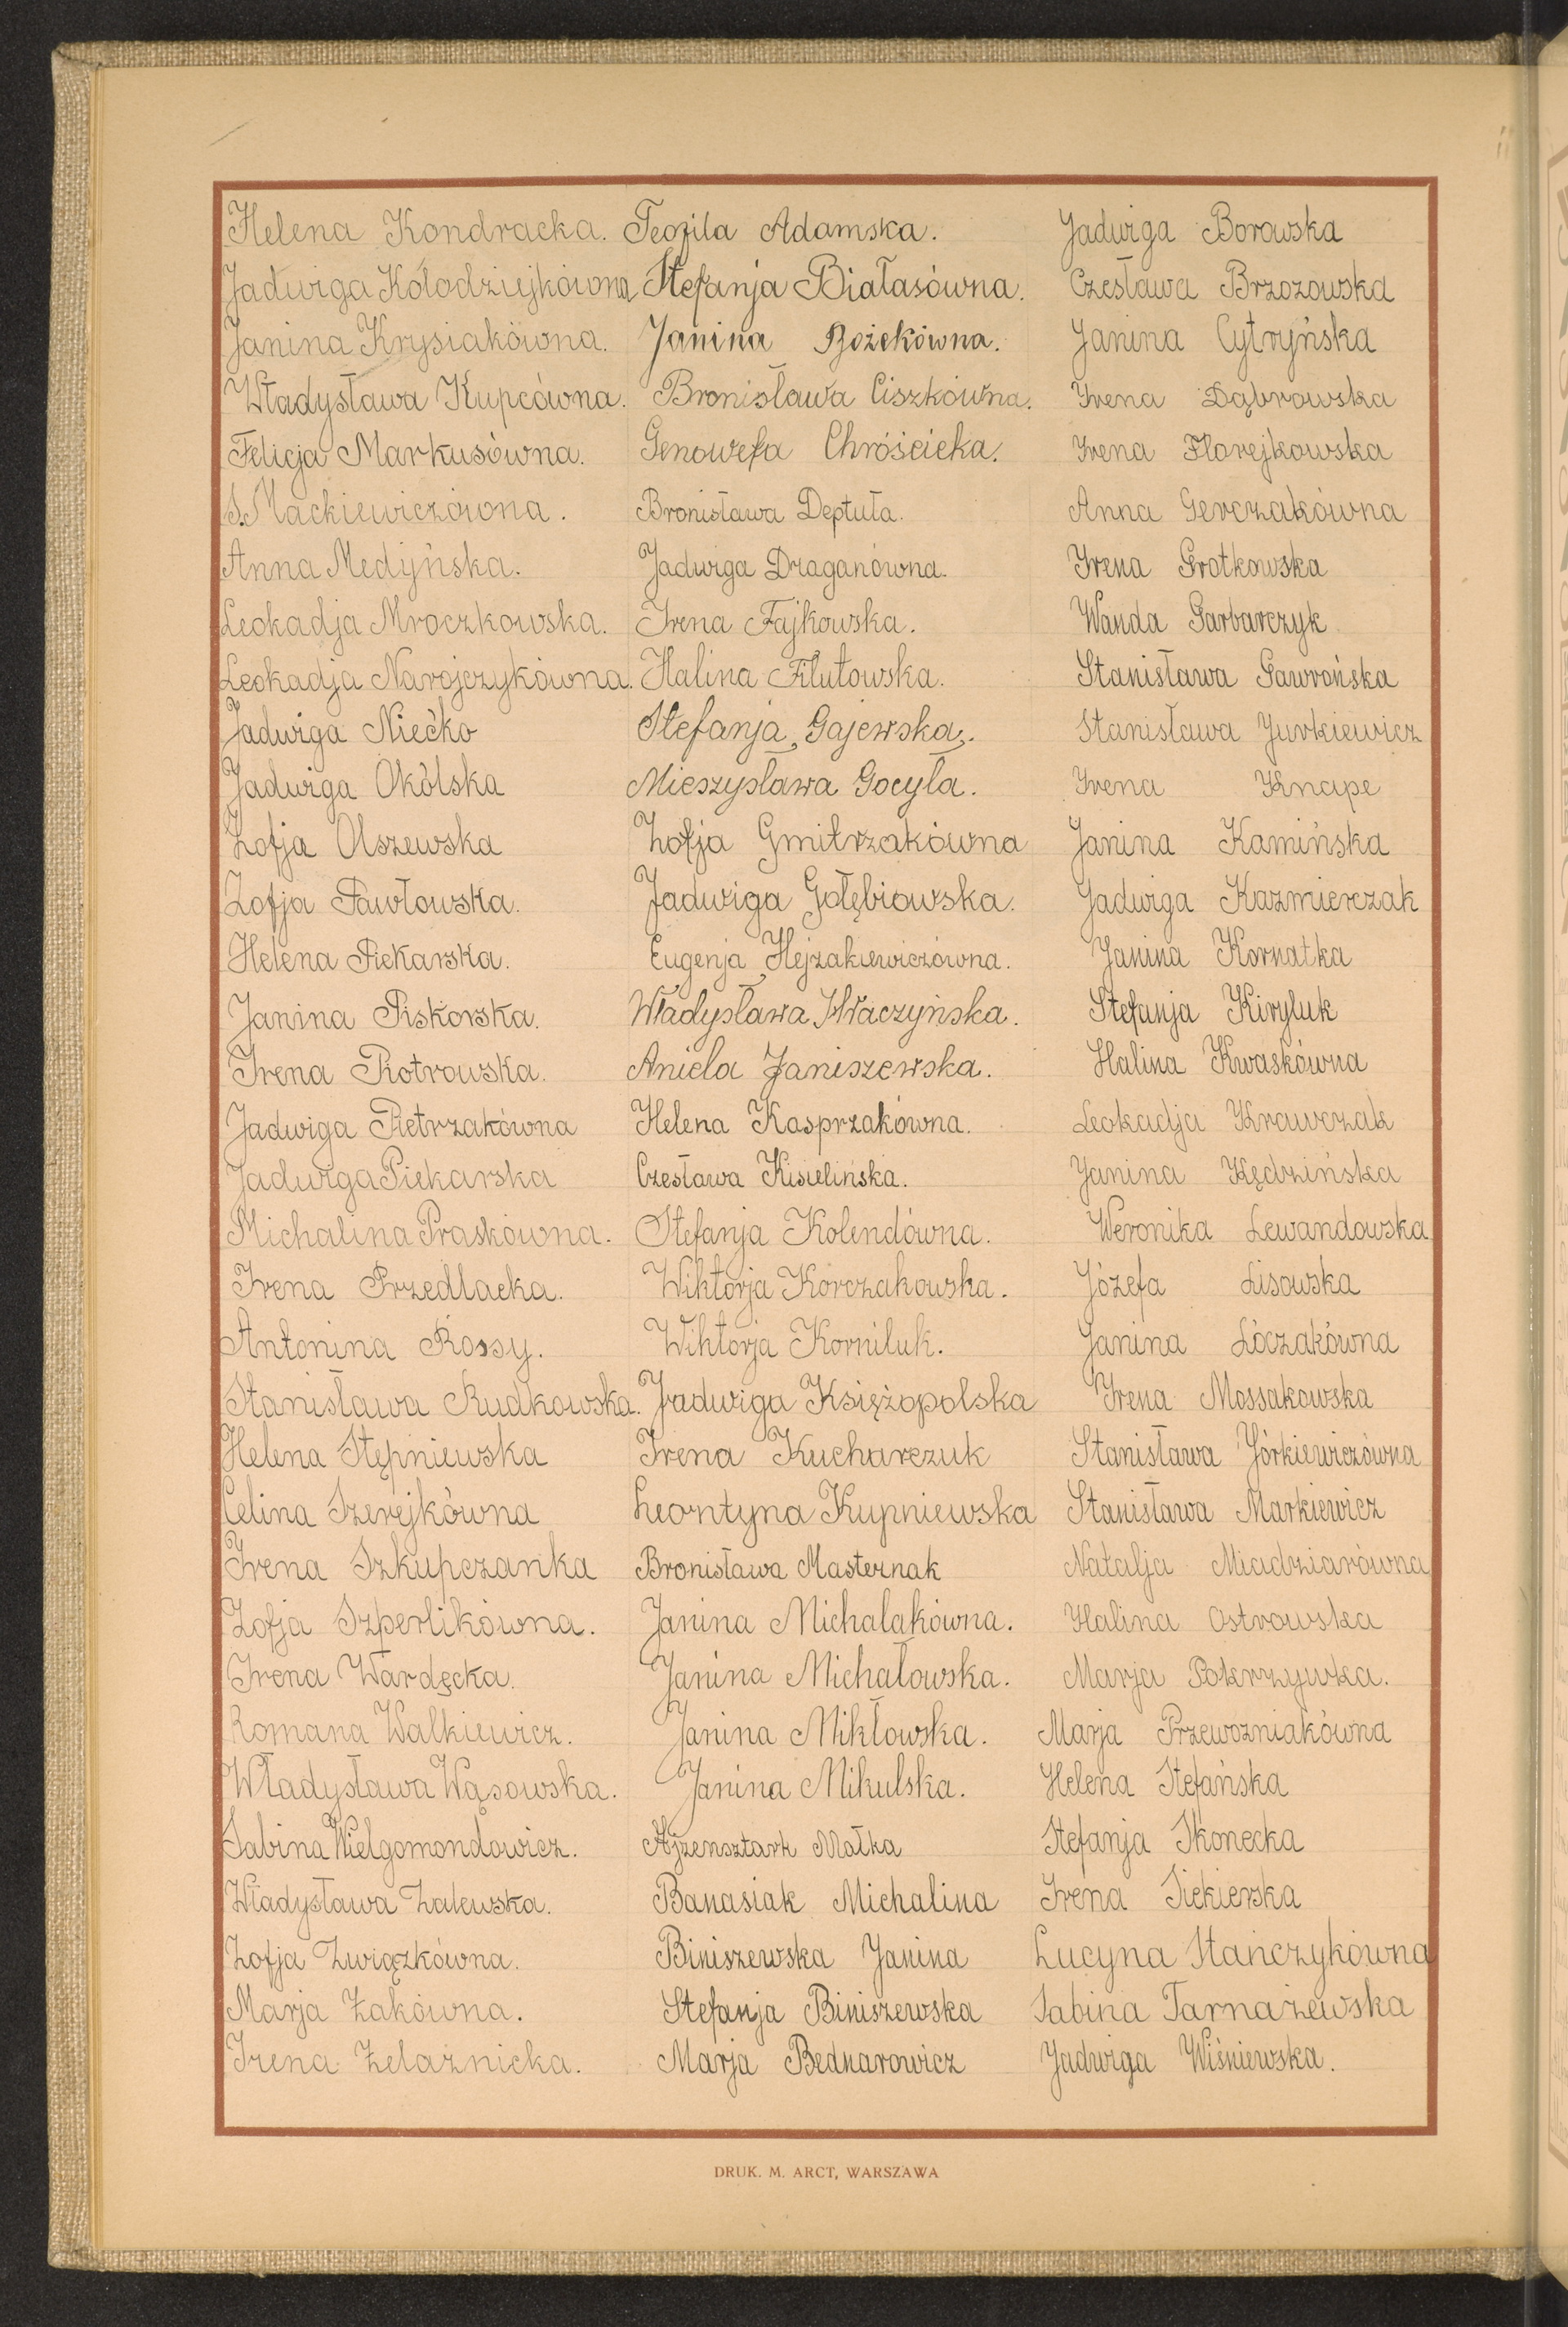 Helena Kondracka.
Jadwiga Kołodziejkówna
Janina Krysiakówna.
Władysława Kupcówna.
Felicja Markusówna.
S. Mackiewiczówna.
Anna Medyńska.
Leokadja Mroczkowska.
Leokadja Narojczykówna.
Jadwiga Niećko
Jadwiga Okólska
Zofja Olszewska
Zofja Pawłowska.
Helena Piekarska.
Janina Piskorska.
Irena Piotrowska.
Jadwiga Pietrzakówna
Jadwiga Piekarska
Michalina Praskówna.
Irena Przedlacka.
Antonina Rossy.
Stanisława Rudkowska.
Helena Stępniewska
Celina Szerejkówna
Irena Szkupczanka
Zofja Szperlikówna.
Irena Wardęcka.
Romana Walkiewicz.
Władysława Wąsowska.
Sabina Wielgomondowicz.
Władysława Zalewska.
Zofja Związkówna.
Marja Żakówna.
Irena Żelaźnicka.
Teofila Adamska.
Stefanja Białasówna.
Janina Bożekówna.
Bronisława Ciszkówna.
Genowefa Chróścicka.
Bronisława Deptuła.
Jadwiga Draganówna.
Irena Fajkowska.
Halina Filutowska.
Stefanja Gajewska.
Mieszysława Gocyła.
Zofja Gmitrzakówna
Jadwiga Gołębiowska.
Eugenja Hejzakiewiczówna.
Władysława
Aniela Janiszewska.
Helena Kasprzakówna.
Czesława Kisielińska.
Stefanja Kolendówna.
Wiktorja Korczakowska.
Wiktorja Korniluk.
Jadwiga Księżopolska
Irena Kucharczuk
Leontyna Kupniewska
Bronisława Masternak
Janina Michalakówna.
Janina Michałowska.
Janina Mikłowska.
Janina Mikulska.
Ajzensztark Małka
Banasiak Michalina
Biniszewska Janina
Stefanja Biniszewska
Marja Bednarowicz
Jadwiga Borowska
Czesława Brzozowska
Janina Cytryńska
Irena Dąbrowska
Irena Florejkowska
Anna Gerczakówna
Irena Grotkowska
Wanda Garbarczyk
Stanisława Gawrońska
Stanisława Jurkiewicz
Irena Knape
Janina Kamińska
Jadwiga Kazmierczak
Janina Kornatka
Stefanja Kiryluk
Halina Kwaskówna
Leokadja Krawczak
Janina Kędzińska
Weronika Lewandowska
Józefa Lisowska
Janina Lóczakówna
Irena Mossakowska
Stanisława Jórkiewiczówna
Stanisława Markiewicz
Natalja Miadziarówna
Halina Ostrowska
Marja Pokrzywka.
Marja Przewozniakówna
Helena Stefańska
Stefanja Skonecka
Irena Siekierska
Lucyna Stańczykówna
Sabina Tarnażewska
Jadwiga Wiśniewska.
DRUK. M. ARCT, WARSZAWA